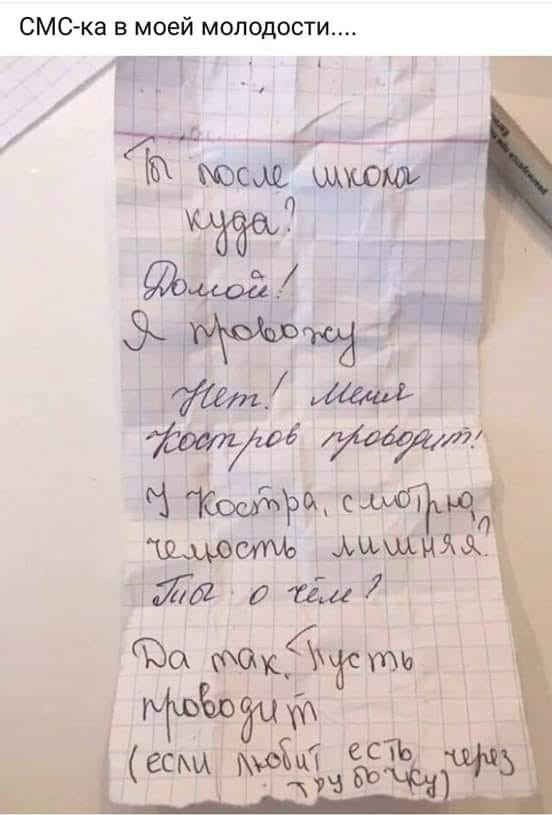 СМС-ка в моей молодости....
Ты после школы
куда?
Домой!
Я провожу
Нет! Меня
Костров проводит!
У Костра, смотрю,
челюсть лишняя?
Ты о чём?
Да так. Пусть
проводит
(если любит есть через
трубочку)